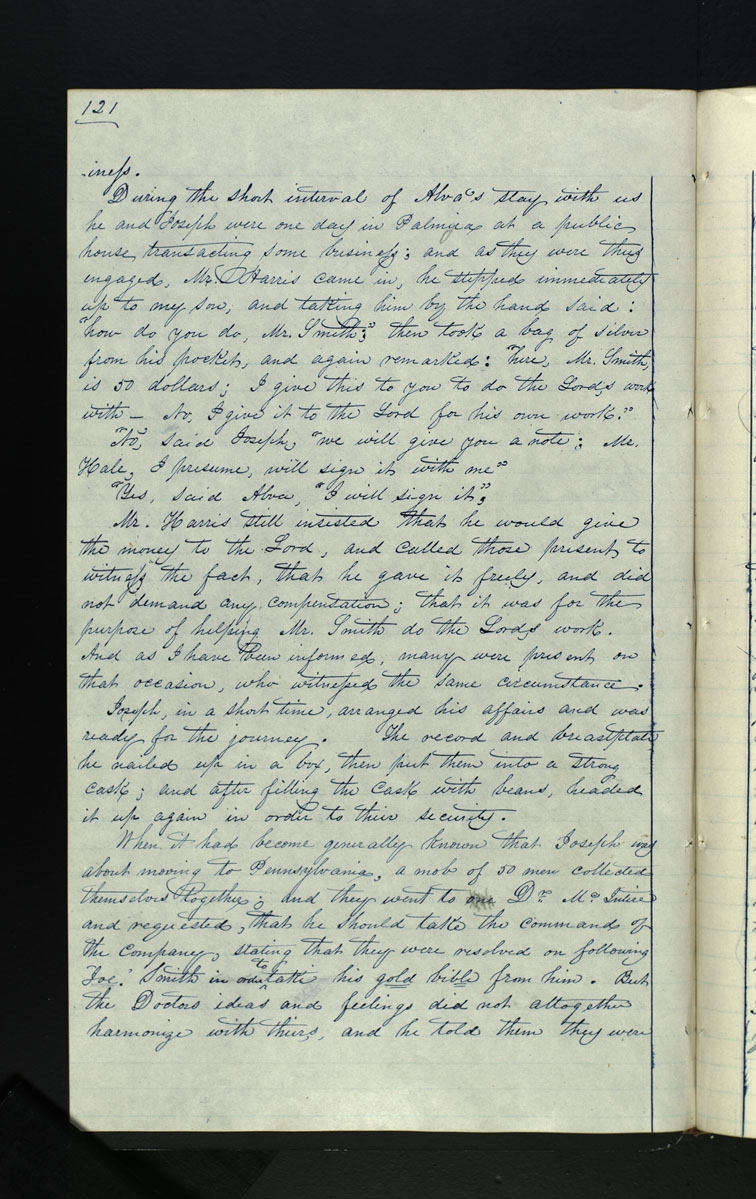 121
-iness.
During the short interval of Alva's stay with us
he and Joseph were one day in Palmyra at a public
house transacting some business; and as they were thus
engaged, Mr. Harris came in, he stepped immediately
up to my son, and taking him by the hand said:
"how do you do, Mr. Smith;" then took a bag of silver
from his pocket, and again remarked: "here, Mr. Smith,
is 50 dollars; I give this to you to do the Lord,s work
with— No, I give it to the Lord for his own work."
"No", said Joseph, "we will give you a note; Mr.
Hale, I presume, will sign it with me"
"Yes, said Alva, "I will sign it";
Mr. Harris still insisted that he would give
the money to the Lord, and called those present to
witness the fact, that he gave it freely, and did
not demand any compensation; that it was for the
purpose of helping Mr. Smith do the Lords work.
And as I have been informed, many were present on
that occasion, who witnessed the same circumstance.
Joseph, in a short time, arranged his affairs and was
ready for the journey. The record and breastplate
he nailed up in a box, then put them into a strong
cask; and after filling the cask with beans, headed
it up again in order to their security.
When it had become generally known that Joseph was
about moving to Pennsylvania, a mob of 50 men collected
themselvs together; and they went to one Dr. Mc Intire
and requested, that he should take the command of
the company, stating that they were resolved on following
"Joe." Smith in order to take his gold bible from him. But
the Doctors ideas and feelings did not altogether
harmonize with theirs, and he told them they were